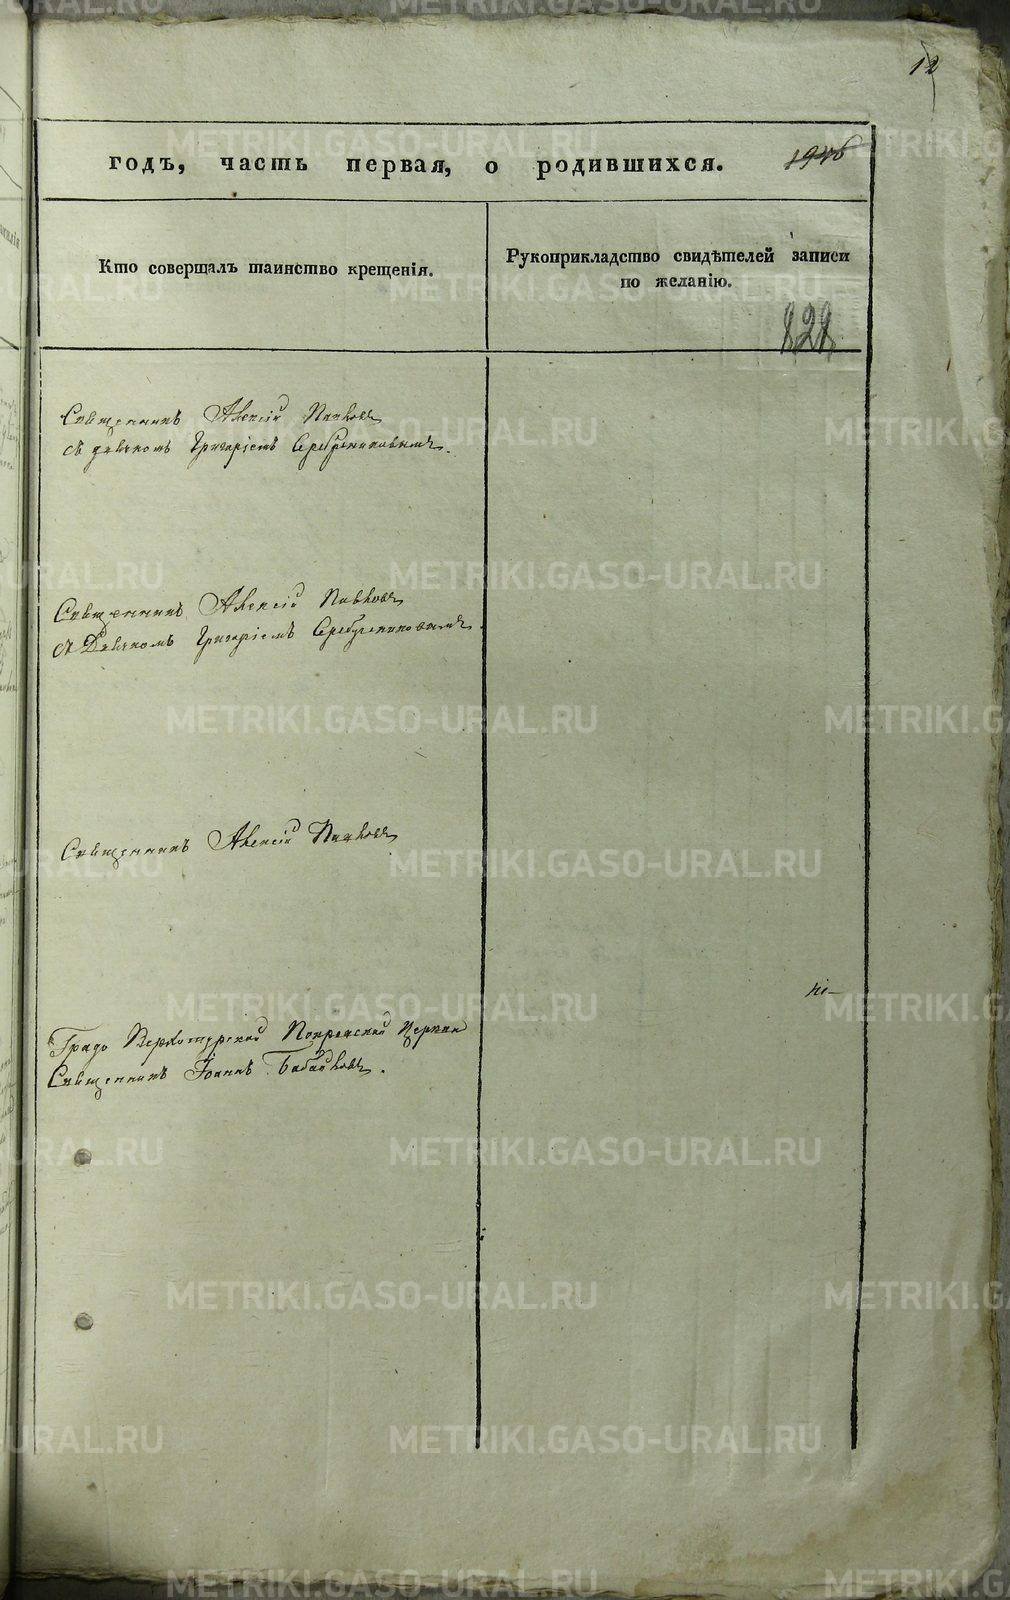 12
годъ, часть первая, о родившихся. 1946
Кто совершалъ таинство крещенія.
Рукоприкладство свидѣтелей записи
по желанію.
828
Священникъ Алексій
съ дьячкомъ Григоріемъ Серебрениковымъ.
Священникъ Алексій
съ Дьячкомъ Григоріемъ Серебрениковымъ.
Священникъ Алексій
Градо Верхотурской Покровской Церкви
Священникъ Іоаннъ
METRIKI.GASO-URAL.RU